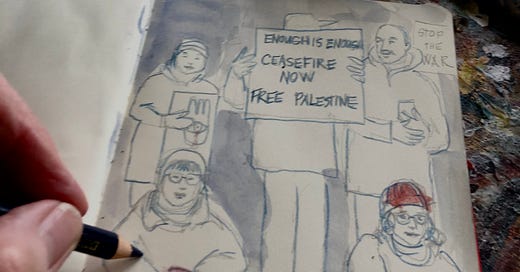 ENOUGH IS ENOUGH
CEASEFIRE
NOW
FREE PALESTINE
STOP
THE
WAR